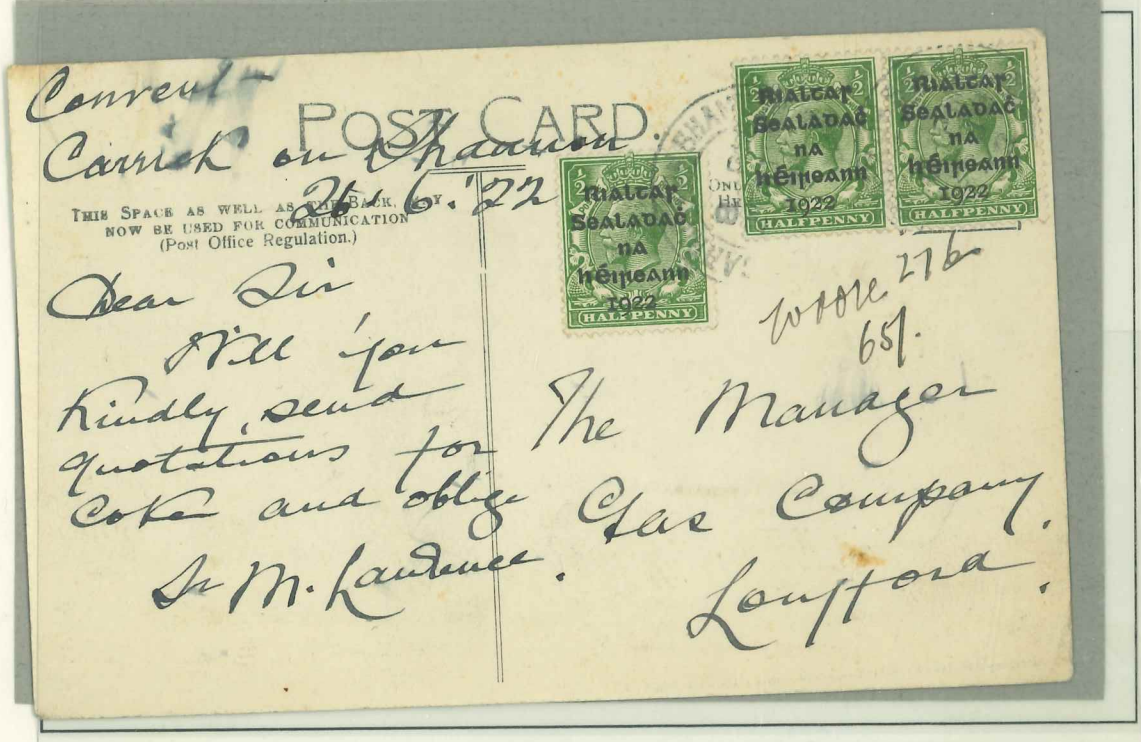 Convent
Carrick on Shannon
26.6.'22
POST CARD.
THIS SPACE AS WELL AS THE BACK, MAY
NOW BE USED FOR COMMUNICATION
(Post Office Regulation.)
Dear Sir
Will you
kindly send
quotations for
Coke and oblige
Sr M. Lawrence.
Rialtar
Sealadaċ
na
hÉireann
1922
HALFPENNY
Rialtar
Sealadaċ
na
hÉireann
1922
HALFPENNY
Rialtar
Sealadaċ
na
hÉireann
1922
HALFPENNY
27/6
65/.
The Manager
Gas Company.
Longford.